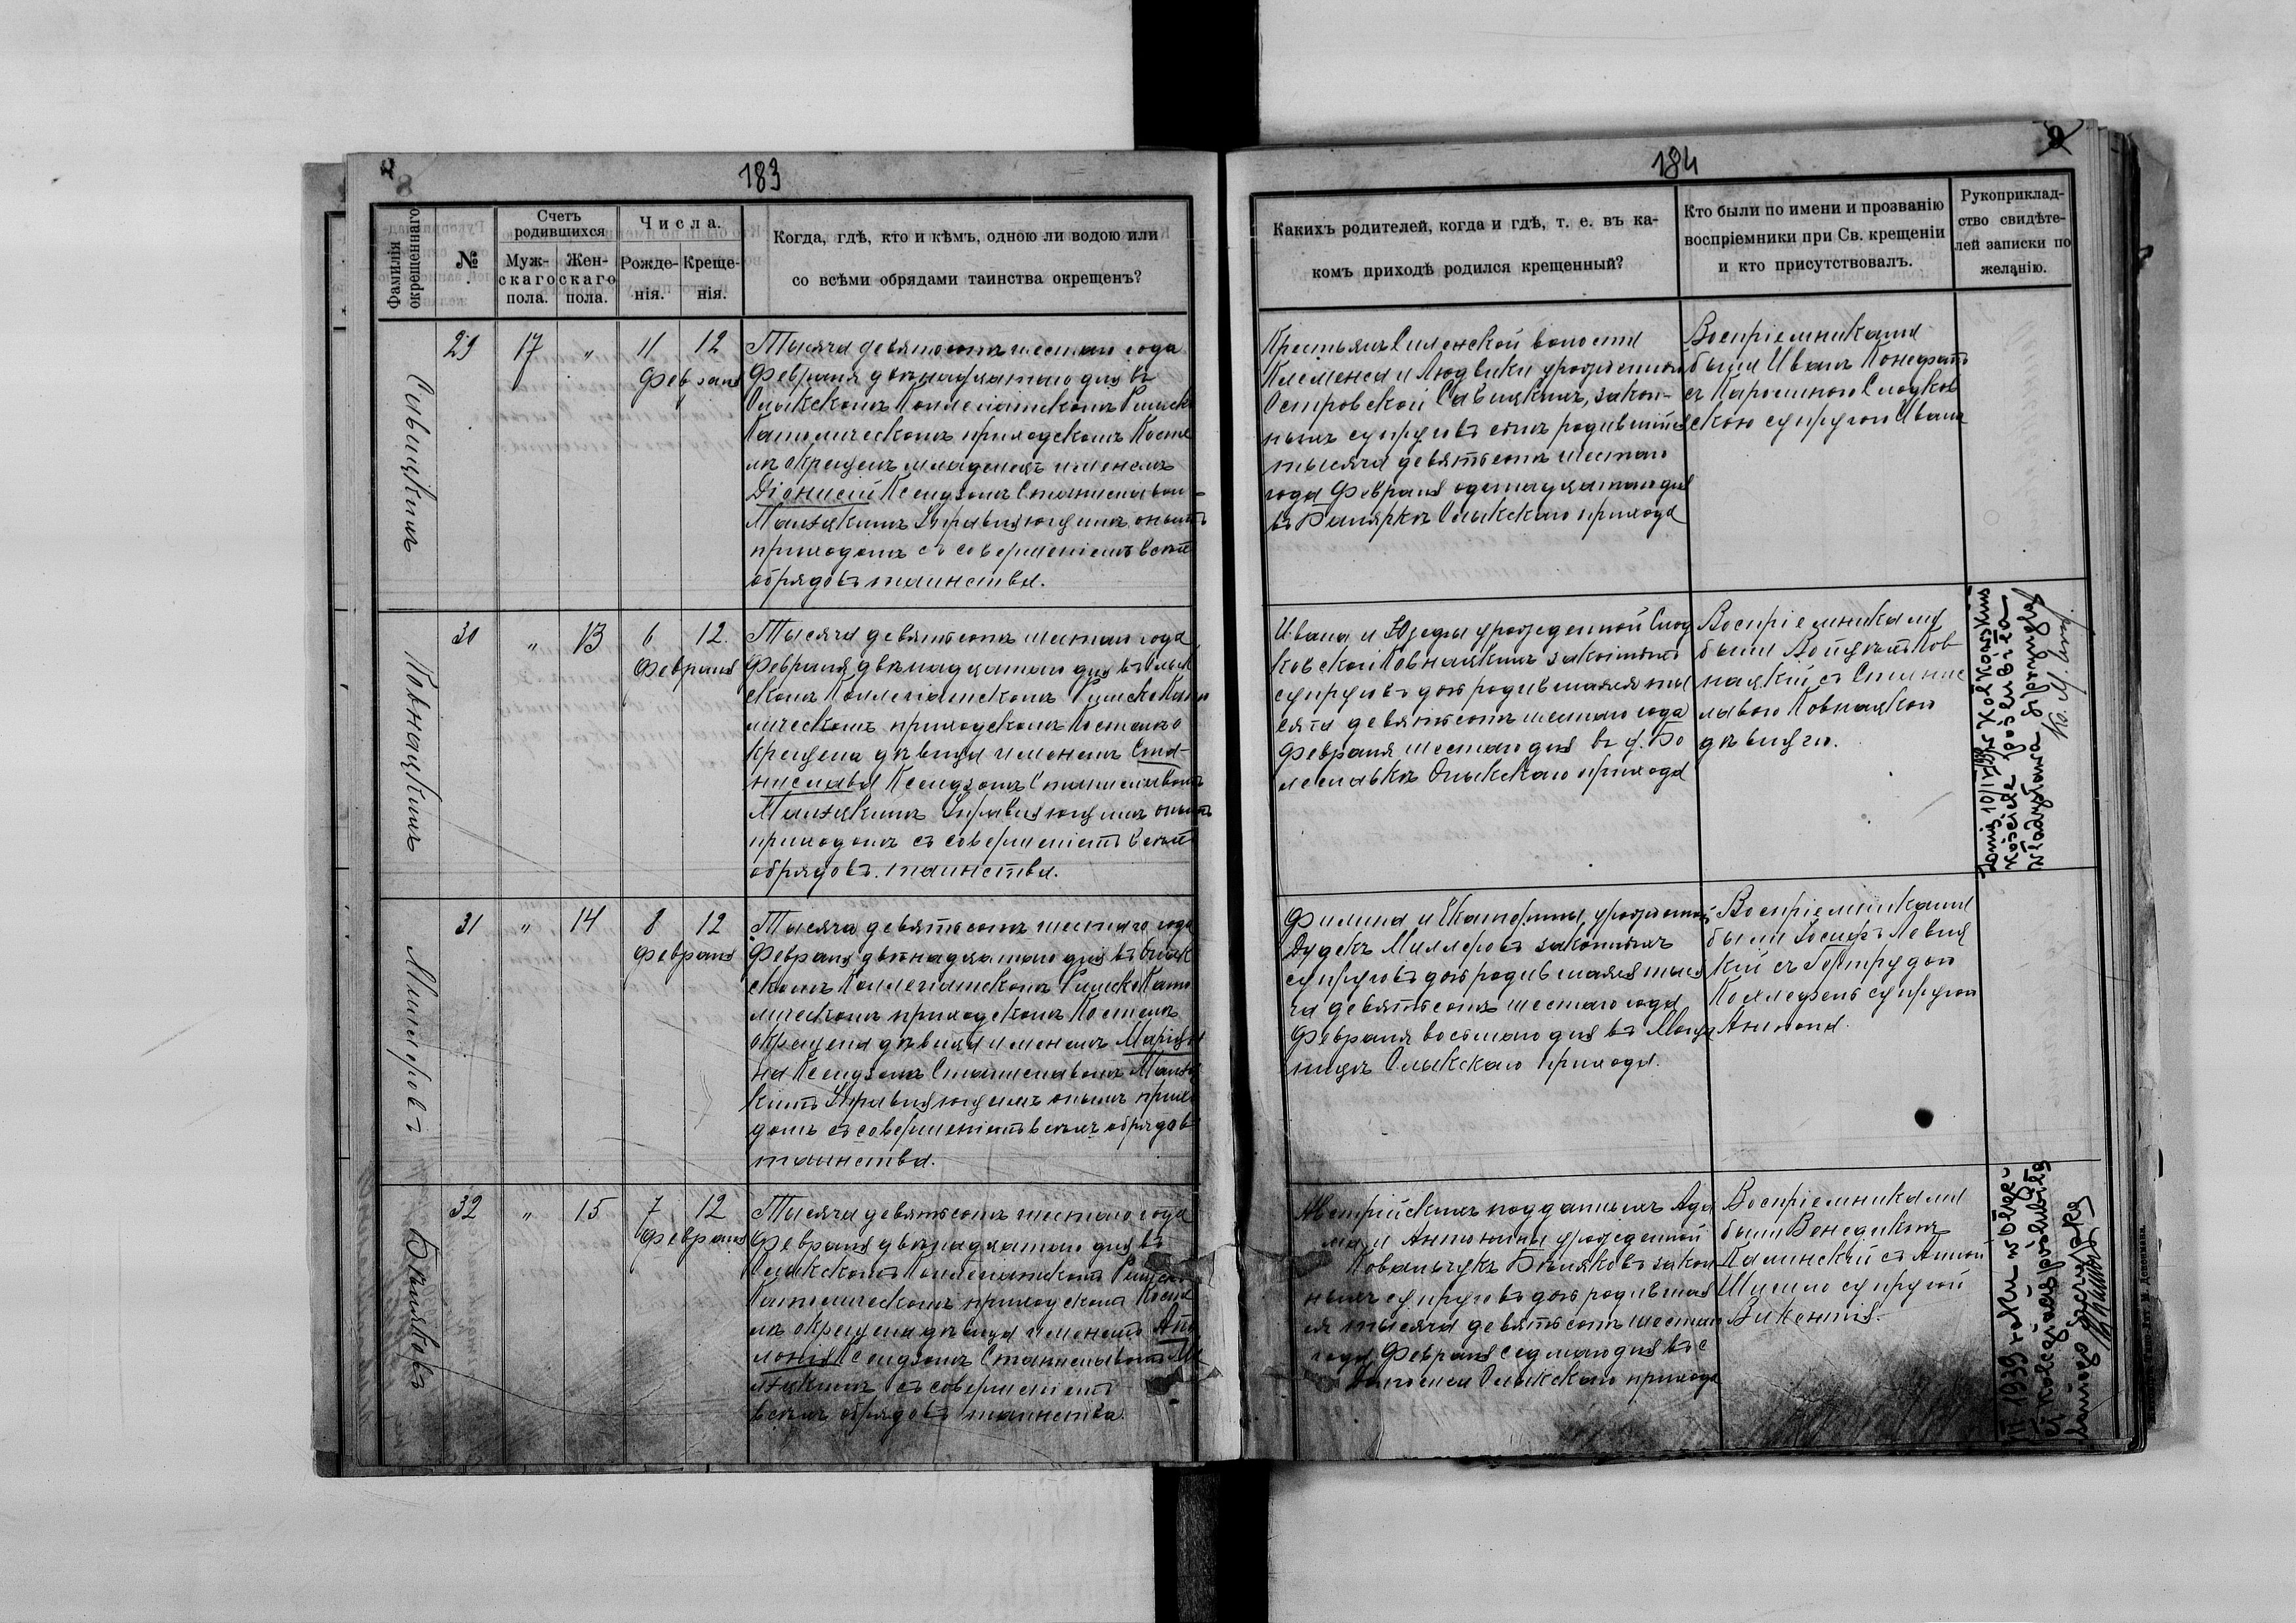 183
Фамилія окрещеннаго
№
Счетъ родившихся
Муж-скаго пола.
Жен-скаго пола.
Числа.
Рожде-нія.
Креще-нія.
Когда, гдѣ, кто и кѣмъ, одною ли водою или
со всѣми обрядами таинства окрещенъ?
29
17
"
11
12
Февраля
Тысяча девятьсотъ шестаго года
Февраля двѣнадцатаго дня въ
Олыкскомъ Коллегіатскомъ Римско
Католическомъ приходскомъ Косте
лѣ окрещенъ младенецъ именемъ
Діонисій Ксендзомъ Станиславом
приходомъ съ совершеніемъ всѣхъ
обрядовъ таинства.
Ковнацкихъ
30
"
13
6
12.
Февраля
Тысяча девятьсотъ шестаго года
Февраля двѣнадцатаго дня въ Олык
скомъ Коллегіатскомъ Римско Като
лическомъ приходскомъ Костелѣ о
крещена дѣвица именемъ Ста-
нислава Ксендзомъ Станиславомъ
Управляющимъ онымъ
приходомъ съ совершеніемъ всѣхъ
обрядовъ таинства.
Миллеровъ
31
"
14
8
12
Февраля
Тысяча девятьсотъ шестаго года
Февраля двѣнадцатаго дня въ Олык
скомъ Коллегіатскомъ Римско Като
лическомъ приходскомъ Костелѣ
окрещена дѣвица именемъ Маріан
на Ксендзомъ Станиславомъ
Управляющимъ онымъ прихо
домъ съ совершеніемъ всѣхъ обрядовъ
таинства.
Бѣляковъ
32
"
15
7
12
Февраля
Тысяча девятьсотъ шестаго года
Февраля двѣнадцатаго дня въ
Олыкскомъ Коллегіатскомъ Римско
Католическомъ приходскомъ Косте
лѣ окрещена дѣвица именемъ Апо
лонія Ксендзомъ Станиславомъ
съ совершеніемъ
всѣхъ обрядовъ таинства.
184
9
Какихъ родителей, когда и гдѣ, т. е. въ ка-
комъ приходѣ родился крещенный?
Кто были по имени и прозванію
воспріемники при Св. крещеніи
и кто присутствовалъ.
Рукоприклад-
ство свидѣте-
лей записки по
желанію.
Крестьянъ Силенской волости
Клеменса и Людвики урожденной
Островской законн-
ныхъ супруговъ сынъ родившійся
тысяча девятьсотъ шестаго
года Февраля одинадцатаго дня
въ Олыкскаго прихода
Воспріемниками
были Иванъ
съ Каролиною
скою супругою Ивана
Ивана и Юзефы урожденной Слод
ковской Ковнацкихъ законныхъ
супруговъ дочь родившаяся тыс
яча девятьсотъ шестаго года
Февраля шестаго дня въ д. Бо
леславкѣ Олыкскаго прихода
Воспріемниками
были Войцѣхъ Ков
нацкій съ Станис
лавою Ковнацкою
дѣвицею.
Филипа и Екатерины урожденной
Дудекъ Миллеровъ законныхъ
супруговъ дочь родившаяся тыся
ча девятьсотъ шестаго года
Февраля восьмаго дня въ
Олыкскаго прихода.
Воспріемниками
были Іосифъ Левиц
кій съ Гертрудою
супругою
Антона.
Австрійскихъ подданныхъ Ада
ма и Антонины урожденной
Ковальчукъ Бѣляковъ закон
ныхъ супруговъ дочь родившая
ся тысяча девятьсотъ шестаго
года Февраля седмаго дня въ с
Олыкскаго прихода
Воспріемниками
были Венедиктъ
Калинскій съ Анной
супругой
Викентія.
kościele poślubiła
Władysława
1939 roku w Ołyc-